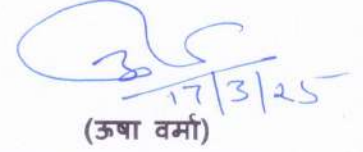 17/3/25
(ऊषा वर्मा)